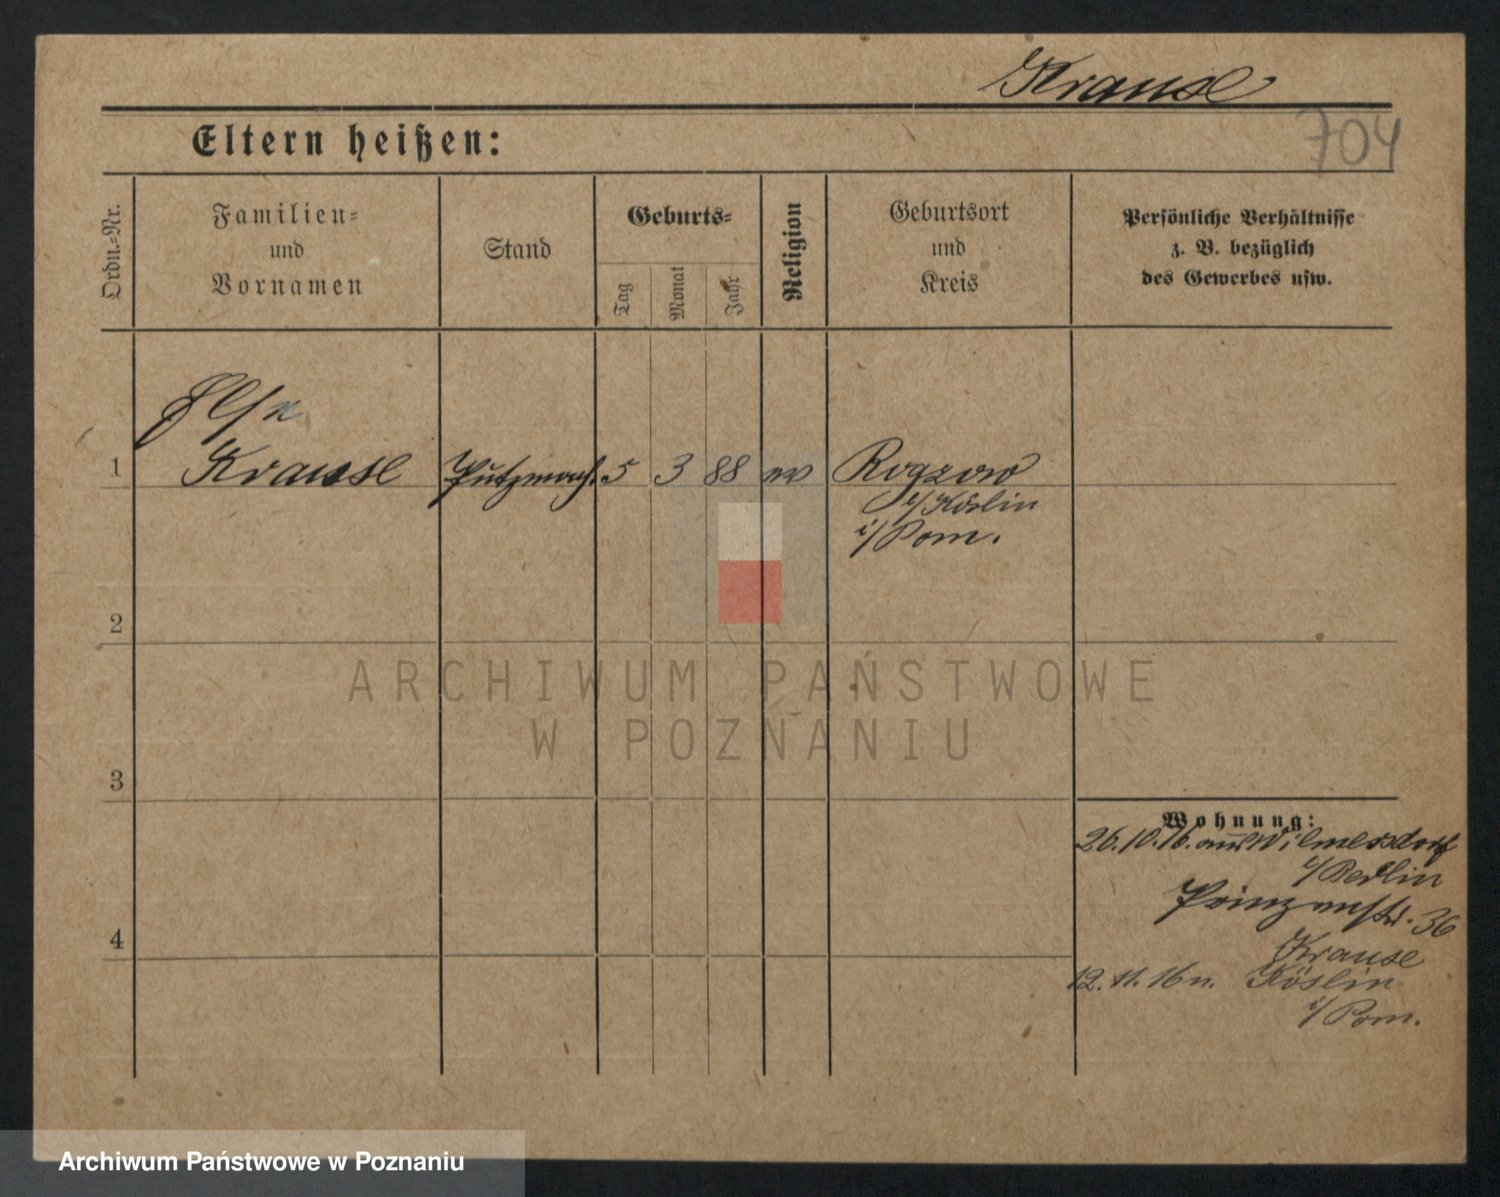 Krause
704
Eltern heißen:
Ordn.-Nr.
Familien-
und
Vornamen
Stand
Geburts-
Tag
Monat
Jahr
Religion
Geburtsort
und
Kreis
Persönliche Verhältnisse
z. B. bezüglich
des Gewerbes usw.
Else
1 Krause Putzmach. 5 3 88 ev Rogzow
b/Köslin
i/Pom.
2
3
4
ARCHIWUM PAŃSTWOWE
W POZNANIU
Wohnung:
26.10.16. aus Wilmersdorf
b/Berlin
Prinzenstr. 36
Krause
12. 11. 16 n. Köslin
i/Pom.
Archiwum Państwowe w Poznaniu